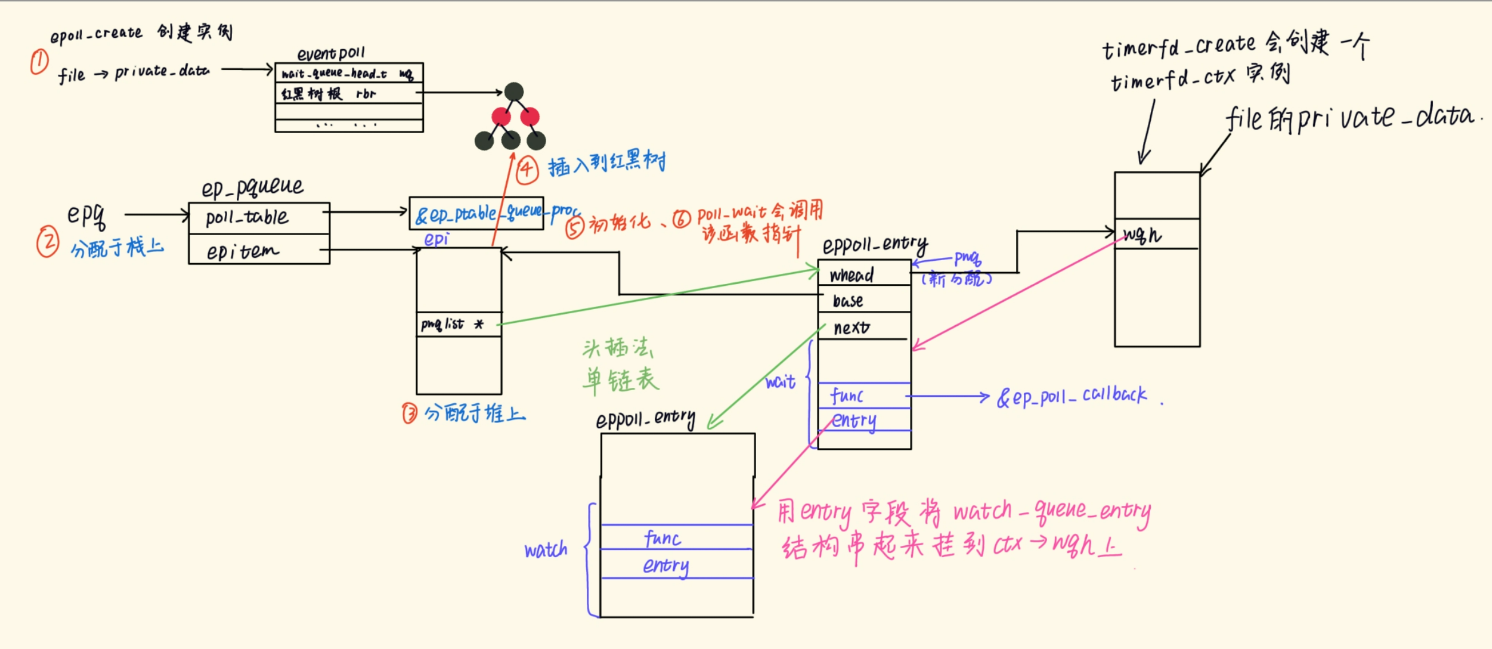 epoll_create 创建实例
①
file → private_data
eventpoll
wait_queue_head_t wq
红黑树根 rbr
... ...
④ 插入到红黑树
timerfd_create 会创建一个
timerfd_ctx 实例
file的private_data.
epq
② 分配于栈上
ep_pqueue
poll_table
epitem
&ep_ptable_queue_proc
⑤ 初始化、⑥ poll_wait会调用
该函数指针
epi
pwqlist *
③ 分配于堆上
头插法
单链表
eppoll_entry
pwq
(新分配)
whead
base
next
wait
func
entry
&ep_poll_callback .
wqh
eppoll_entry
watch
func
entry
用entry字段将 watch_queue_entry
结构串起来挂到ctx→wqh上